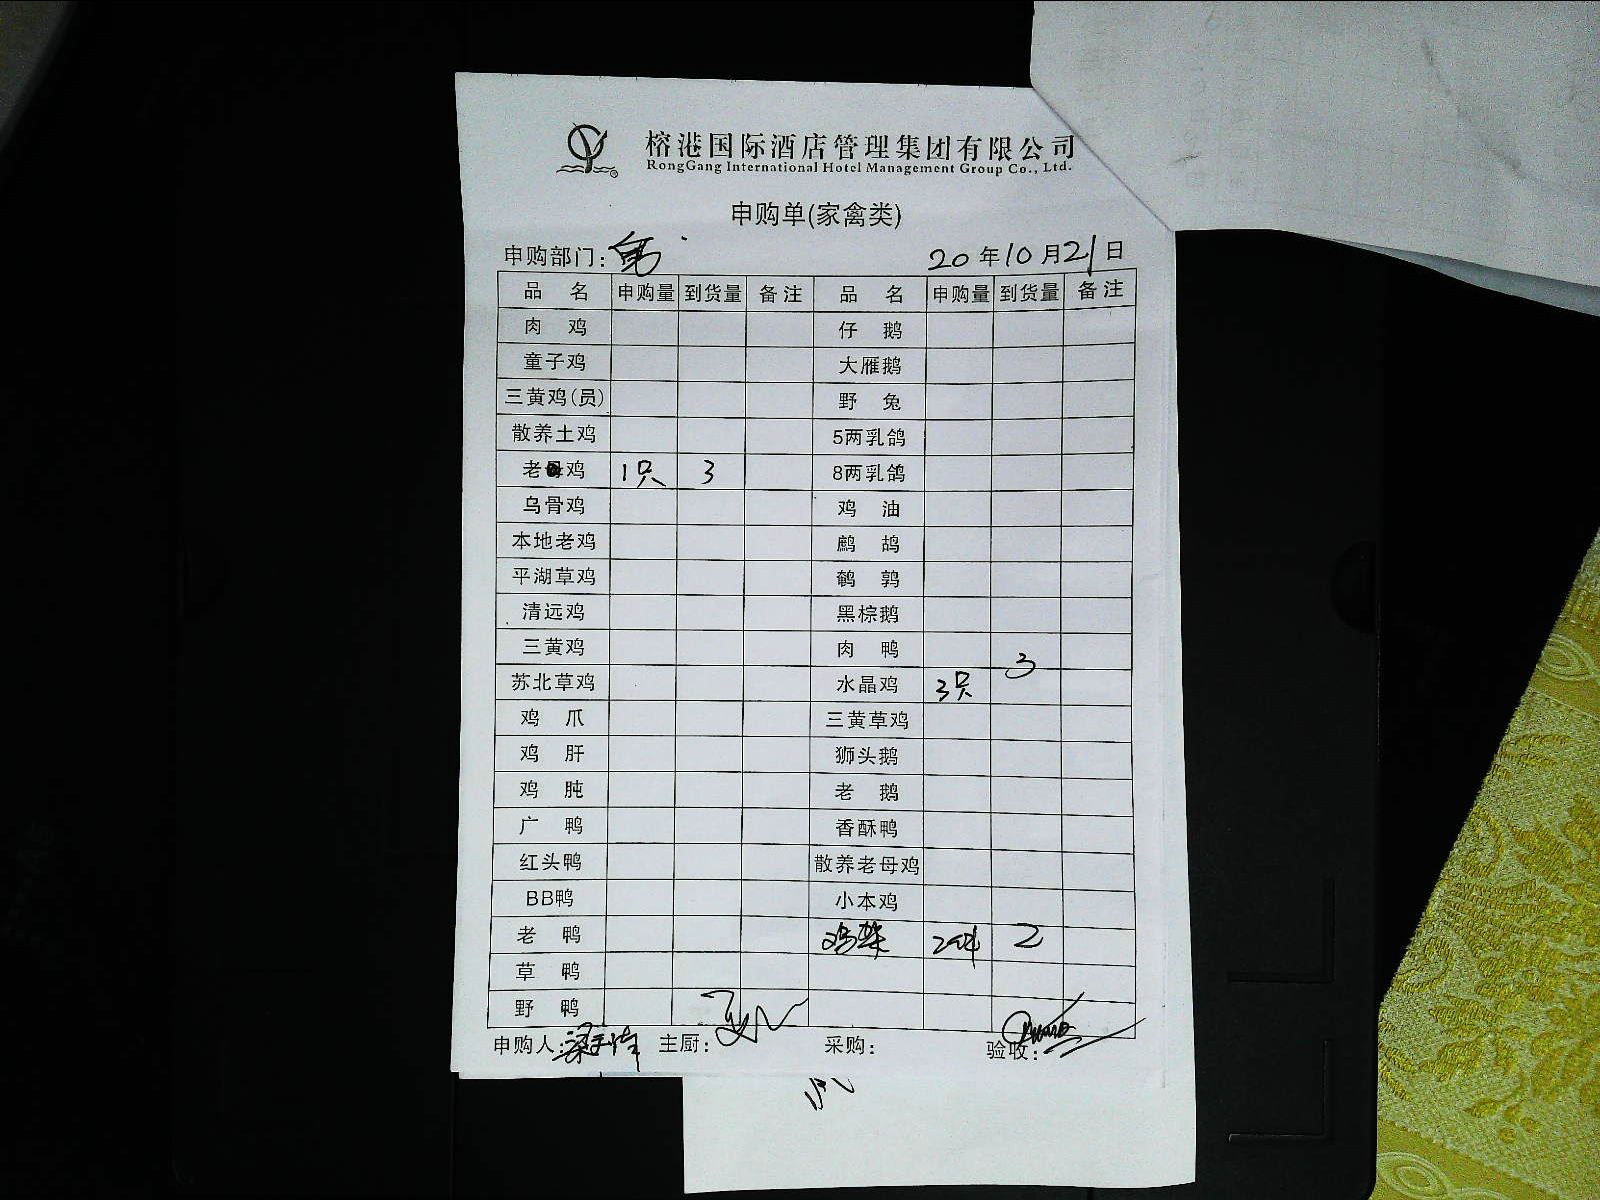 榕港国际酒店管理集团有限公司
RongGang International Hotel Management Group Co., Ltd.
申购单(家禽类)
申购部门: 20年10月21日
品 名 申购量 到货量 备注 品 名 申购量 到货量 备注
肉 鸡 仔 鹅
童子鸡 大雁鹅
三黄鸡(员) 野 兔
散养土鸡 5两乳鸽
老母鸡 1只 3 8两乳鸽
乌骨鸡 鸡 油
本地老鸡 鹧 鸪
平湖草鸡 鹌 鹑
清远鸡 黑棕鹅
三黄鸡 肉 鸭
苏北草鸡 水晶鸡 3只 3
鸡 爪 三黄草鸡
鸡 肝 狮头鹅
鸡 肫 老 鹅
广 鸭 香酥鸭
红头鸭 散养老母鸡
BB鸭 小本鸡
老 鸭 鸡 2 2
草 鸭
野 鸭
申购人: 主厨: 采购: 验收: